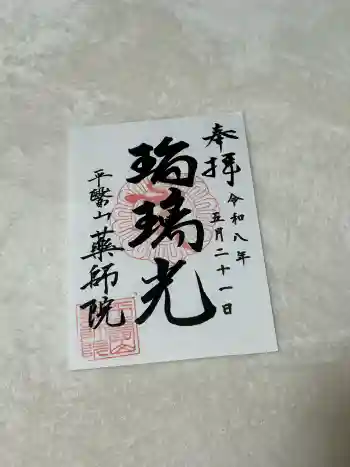 奉拝
令和八年
五月二十一日
瑠璃光
平醫山薬師院